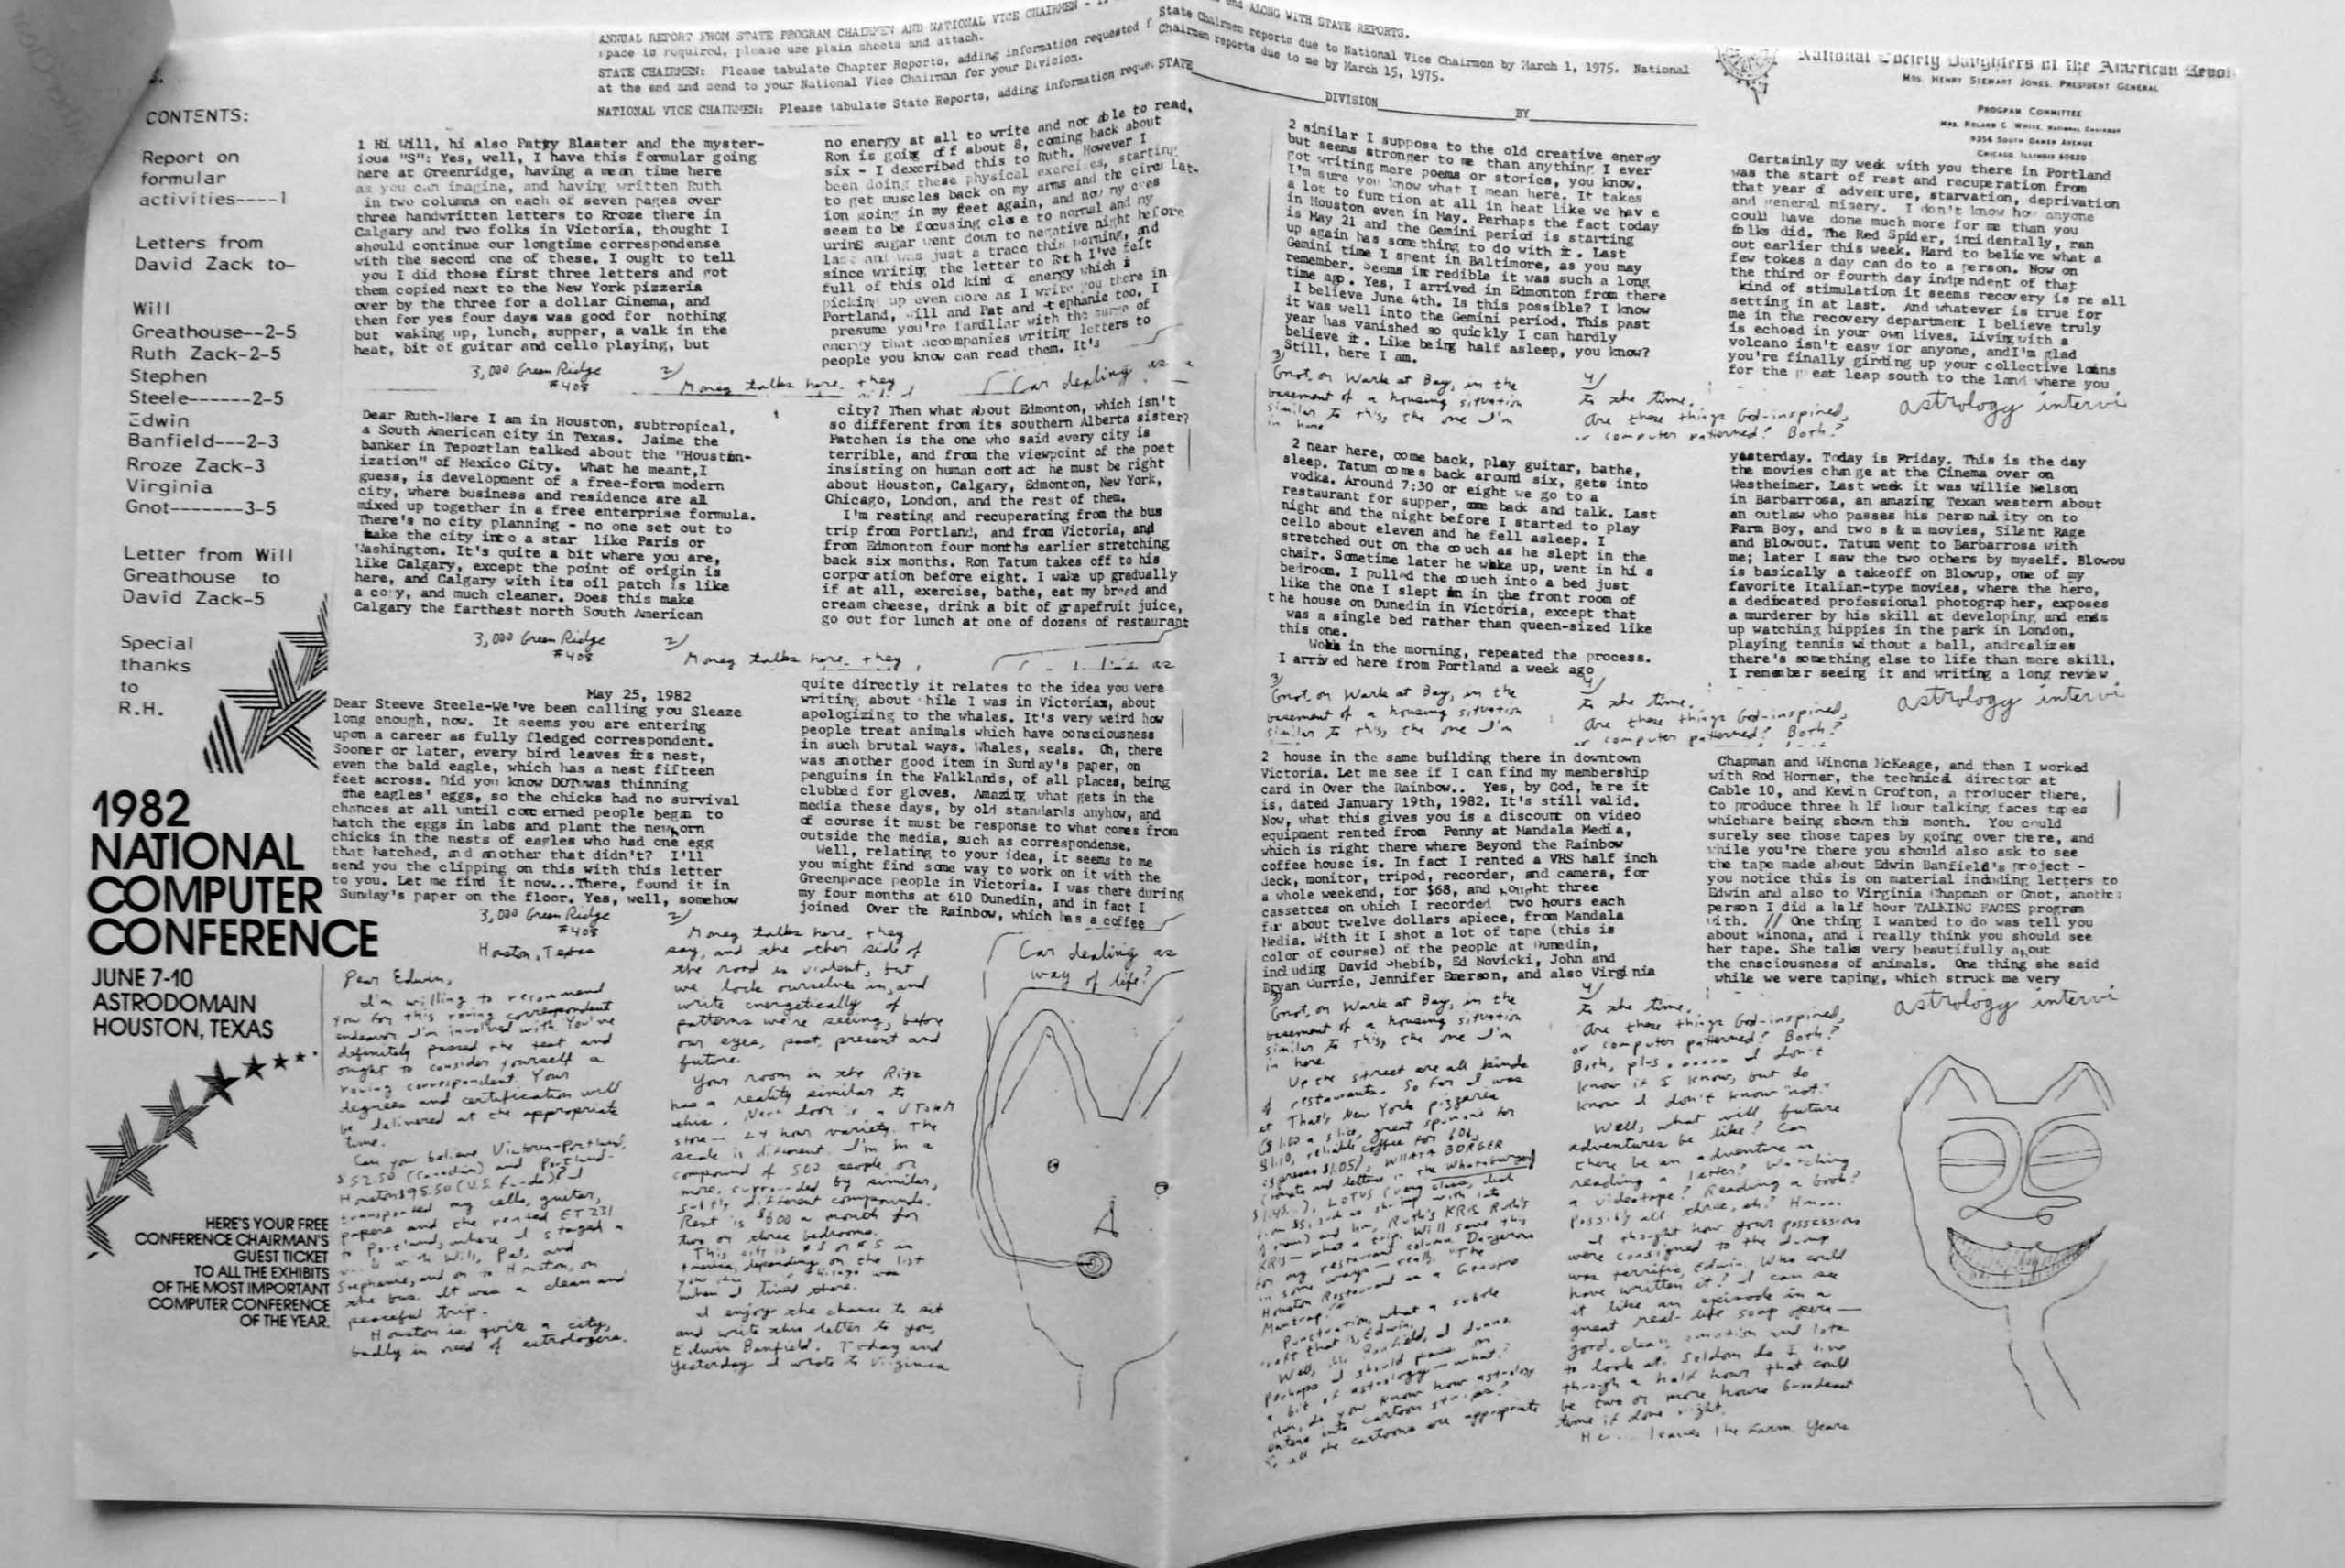 ANNUAL REPORT FROM STATE PROGRAM CHAIRMEN AND NATIONAL VICE CHAIRMEN -
space is required, please use plain sheets and attach.
STATE CHAIRMEN: Please tabulate Chapter Reports, adding information requested
at the end and send to your National Vice Chairman for your Division.
NATIONAL VICE CHAIRMEN: Please tabulate State Reports, adding information
CONTENTS:
Report on
formular
activities----1
Letters from
David Zack to-
Will
Greathouse--2-5
Ruth Zack-2-5
Stephen
Steele------2-5
Edwin
Banfield---2-3
Rroze Zack-3
Virginia
Gnot-------3-5
Letter from Will
Greathouse to
David Zack-5
Special
thanks
to
R.H.
1982
NATIONAL
COMPUTER
CONFERENCE
JUNE 7-10
ASTRODOMAIN
HOUSTON, TEXAS
HERE'S YOUR FREE
CONFERENCE CHAIRMAN'S
GUEST TICKET
TO ALL THE EXHIBITS
OF THE MOST IMPORTANT
COMPUTER CONFERENCE
OF THE YEAR.
1 Hi Will, hi also Patty Blaster and the myster-
ious "S": Yes, well, I have this formular going
here at Greenridge, having a mean time here
as you can imagine, and having written Ruth
in two columns on each of seven pages over
three handwritten letters to Rroze there in
Calgary and two folks in Victoria, thought I
should continue our longtime correspondense
with the second one of these. I ought to tell
you I did those first three letters and got
them copied next to the New York pizzeria
over by the three for a dollar Cinema, and
then for yes four days was good for nothing
but waking up, lunch, supper, a walk in the
heat, bit of guitar and cello playing, but
3,000 Green Ridge
#408
no energy at all to write and not able to read,
Ron is goig off about 8, coming back about
six - I dexcribed this to Ruth. However I
been doing these physical exercises, starting
to get muscles back on my arms and the circu lat-
ion going in my feet again, and now my eyes
seem to be focusing close to normal and my
uring sugar went down to negative night before
last and was just a trace this morning, and
since writing the letter to Ruth I've felt
full of this old kind of energy which is
picking up even more as I write you there in
Portland, Will and Pat and Stephanie too. I
presume you're familiar with the surge of
energy that accompanies writing letters to
people you know can read them. It's
2/
Money talks here. they
Car dealing as
Dear Ruth-Here I am in Houston, subtropical,
a South American city in Texas. Jaime the
banker in Tepoztlan talked about the "Houston-
ization" of Mexico City. What he meant,I
guess, is development of a free-form modern
city, where business and residence are all
mixed up together in a free enterprise formula.
There's no city planning - no one set out to
make the city into a star like Paris or
Washington. It's quite a bit where you are,
like Calgary, except the point of origin is
here, and Calgary with its oil patch is like
a copy, and much cleaner. Does this make
Calgary the farthest north South American
3,000 Green Ridge
#408
city? Then what about Edmonton, which isn't
so different from its southern Alberta sister?
Patchen is the one who said every city is
terrible, and from the viewpoint of the poet
insisting on human contact he must be right
about Houston, Calgary, Edmonton, New York,
Chicago, London, and the rest of them.
I'm resting and recuperating from the bus
trip from Portland, and from Victoria, and
from Edmonton four months earlier stretching
back six months. Ron Tatum takes off to his
corporation before eight. I wake up gradually
if at all, exercise, bathe, eat my bread and
cream cheese, drink a bit of grapefruit juice,
go out for lunch at one of dozens of restaurant
2/
Money talks here. they
May 25, 1982
Dear Steeve Steele-We've been calling you Sleaze
long enough, now. It seems you are entering
upon a career as fully fledged correspondent.
Sooner or later, every bird leaves its nest,
even the bald eagle, which has a nest fifteen
feet across. Did you know DOT was thinning
the eagles' eggs, so the chicks had no survival
chances at all until concerned people began to
hatch the eggs in labs and plant the newborn
chicks in the nests of eagles who had one egg
that hatched, and another that didn't? I'll
send you the clipping on this with this letter
to you. Let me find it now...There, found it in
Sunday's paper on the floor. Yes, well, somehow
3,000 Green Ridge
#408
Houston, Texas
quite directly it relates to the idea you were
writing about while I was in Victoriax, about
apologizing to the whales. It's very weird how
people treat animals which have consciousness
in such brutal ways. Whales, seals. Oh, there
was another good item in Sunday's paper, on
penguins in the Falklands, of all places, being
clubbed for gloves. Amazing what gets in the
media these days, by old standards anyhow, and
of course it must be response to what comes from
outside the media, such as correspondense.
Well, relating to your idea, it seems to me
you might find some way to work on it with the
Greenpeace people in Victoria. I was there during
my four months at 610 Dunedin, and in fact I
joined Over the Rainbow, which has a coffee
Dear Edwin,
I'm willing to recommend
you for this roving correspondent
endeavor I'm involved with. You've
definitely passed the test and
ought to consider yourself a
roving correspondent. Your
degrees and certification will
be delivered at the appropriate
time.
Can you believe Victoria-Portland,
$52.50 (Canadian) and Portland-
Houston $95.50 (U.S. Funds)? I
transported my cello, guitar,
papers and the rented ET 231
to Portland, where I staged a
with Will, Pat, and
Stephanie, and on to Houston, on
the bus. It was a clean and
peaceful trip.
Houston is quite a city,
badly in need of astrologers.
2/
Money talks here. they
say, and the other side of
the road is violent, but
we lock ourselves in, and
write energetically of
patterns we're seeing, before
our eyes, past, present and
future.
Your room in the Ritz
has a reality similar to
this. Next door is a UTOTEM
store — 24 hour variety. The
scale is different. I'm in a
compound of 500 people or
more, surrounded by similar,
subtly different compounds.
Rent is $600 a month for
two or three bedrooms.
This city is #5 or #5 in
America, depending on the list
Chicago was
when I lived there.
I enjoy the chance to sit
and write this letter to you,
Edwin Banfield. Today and
Yesterday I wrote to Virginia
Car dealing as
way of life?
and ALONG WITH STATE REPORTS.
State Chairmen reports due to National Vice Chairmen by March 1, 1975. National
Chairmen reports due to me by March 15, 1975.
STATE
DIVISION
BY
National Society Daughters of the American Revol
MRS. HENRY STEWART JONES, PRESIDENT GENERAL
PROGRAM COMMITTEE
MRS. ROLAND C. WHITE, NATIONAL CHAIRMAN
9356 SOUTH DAMEN AVENUE
CHICAGO, ILLINOIS 60620
2 similar I suppose to the old creative energy
but seems stronger to me than anything I ever
got writing mere poems or stories, you know.
I'm sure you know what I mean here. It takes
a lot to function at all in heat like we have
in Houston even in May. Perhaps the fact today
is May 21 and the Gemini period is starting
up again has something to do with it. Last
Gemini time I spent in Baltimore, as you may
remember. Seems incredible it was such a long
time ago. Yes, I arrived in Edmonton from there
I believe June 4th. Is this possible? I know
it was well into the Gemini period. This past
year has vanished so quickly I can hardly
believe it. Like being half asleep, you know?
Still, here I am.
3/
Gnot, on Wark at Bay, in the
basement of a housing situation
similar to this, the one I'm
in here
4/
to the time.
Are these things God-inspired,
or computer patterned? Both?
Certainly my week with you there in Portland
was the start of rest and recuperation from
that year of adventure, starvation, deprivation
and general misery. I don't know how anyone
could have done much more for me than you
folks did. The Red Spider, incidentally, ran
out earlier this week. Hard to believe what a
few tokes a day can do to a person. Now on
the third or fourth day indpendent of that
kind of stimulation it seems recovery is re all
setting in at last. And whatever is true for
me in the recovery department I believe truly
is echoed in your own lives. Living with a
volcano isn't easy for anyone, andI'm glad
you're finally girding up your collective loins
for the great leap south to the land where you
astrology intervi
2 near here, come back, play guitar, bathe,
sleep. Tatum comes back around six, gets into
vodka. Around 7:30 or eight we go to a
restaurant for supper, come back and talk. Last
night and the night before I started to play
cello about eleven and he fell asleep. I
stretched out on the couch as he slept in the
chair. Sometime later he woke up, went in his
bedroom. I pulled the couch into a bed just
like the one I slept in in the front room of
the house on Dunedin in Victoria, except that
was a single bed rather than queen-sized like
this one.
Woke in the morning, repeated the process.
I arrived here from Portland a week ago
3/
Gnot, on Wark at Bay, in the
basement of a housing situation
similar to this, the one I'm
4/
to the time.
Are these things God-inspired,
or computer patterned? Both?
yesterday. Today is Friday. This is the day
the movies change at the Cinema over on
Westheimer. Last week it was Willie Nelson
in Barbarrosa, an amazing Texan western about
an outlaw who passes his personality on to
Farm Boy, and two s & m movies, Silent Rage
and Blowout. Tatum went to Barbarrosa with
me; later I saw the two others by myself. Blowou
is basically a takeoff on Blowup, one of my
favorite Italian-type movies, where the hero,
a dedicated professional photographer, exposes
a murderer by his skill at developing and ends
up watching hippies in the park in London,
playing tennis without a ball, andrealizes
there's something else to life than mere skill.
I remember seeing it and writing a long review
astrology intervi
2 house in the same building there in downtown
Victoria. Let me see if I can find my membership
card in Over the Rainbow.. Yes, by God, here it
is, dated January 19th, 1982. It's still valid.
Now, what this gives you is a discount on video
equipment rented from Penny at Mandala Media,
which is right there where Beyond the Rainbow
coffee house is. In fact I rented a VHS half inch
deck, monitor, tripod, recorder, and camera, for
a whole weekend, for $68, and bought three
cassettes on which I recorded two hours each
for about twelve dollars apiece, from Mandala
Media. With it I shot a lot of tape (this is
color of course) of the people at Dunedin,
including David Shebib, Ed Novicki, John and
Bryan Currie, Jennifer Emerson, and also Virginia
Chapman and Winona McKeage, and then I worked
with Rod Horner, the technical director at
Cable 10, and Kevin Crofton, a producer there,
to produce three half hour talking faces tapes
whichare being shown this month. You could
surely see those tapes by going over there, and
while you're there you should also ask to see
the tape made about Edwin Banfield's project -
you notice this is on material including letters to
Edwin and also to Virginia Chapman or Gnot, anothe
person I did a half hour TALKING FACES program
with. // One thing I wanted to do was tell you
about Winona, and I really think you should see
her tape. She talks very beautifully about
the cnsciousness of animals. One thing she said
while we were taping, which struck me very
astrology intervi
3/
Gnot, on Wark at Bay, in the
basement of a housing situation
similar to this, the one I'm
in here.
Up the street are all kinds
of restaurants. So far I was
at That's New York pizzaria
($1.00 a slice, great spumoni for
$1.10, reliable coffee for 60¢,
espresso $1.05), WHATA BURGER
(tomato and lettuce in the Whataburger
KRIS — what a trip. Will save this
for my restaurant column Dangerous
in some ways — really "The
Houston Restaurant as a Genuine
Mantrap."
Punctuation, what a subtle
craft that is, Edwin.
Well, Mr. Banfield, I dunno
Perhaps I should pass on
a bit of astrology — what?
Hm, do you know how astrology
enters into cartoon strips?
So all the cartoons are appropriate
4/
to the time.
Are these things God-inspired,
or computer patterned? Both?
Both, plus..... I don't
know if I know, but do
know I don't know "not."
Well, what will future
adventures be like? Can
there be an adventure in
reading a letter? Watching
a videotape? Reading a book?
Possibly all three, eh? Hm...
I thought how your possessions
were consigned to the dump
was terrific, Edwin. Who could
have written it? I can see
it like an episode in a
great real-life soap opera —
good, clean emotion and lots
to look at. Seldom do I live
through a half hour that could
be two or more hours broadcast
time if done right.
leaves the farm. Years